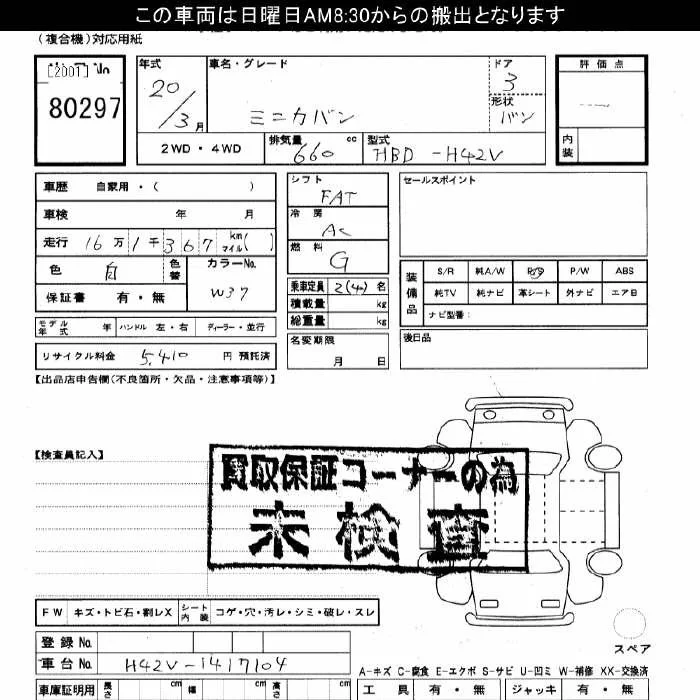 この車両は日曜日AM8:30からの搬出となります
(複合機)対応用紙
[2001] No
80297
年式 20/3月
車名・グレード ミニカバン
ドア 3
形状 バン
評価点
内装
2WD・4WD
排気量 660 cc
型式 HBD -H42V
車歴 自家用・( )
車検 年 月
走行 16万1千367 km マイル( )
色 白 色替
カラーNo. W37
保証書 有・無
モデル年式 年 ハンドル 左・右 ディーラー・並行
リサイクル料金 5,410 円 預託済
シフト FAT
冷房 AC
燃料 G
乗車定員 2(4)名
積載量 kg
総重量 kg
名変期限 月 日
セールスポイント
装備品 S/R 純A/W P/S P/W ABS
純TV 純ナビ 革シート 外ナビ エアB
ナビ型番:
後日品
【出品店申告欄(不良箇所・欠品・注意事項等)】
【検査員記入】
買取保証コーナーの為
未検査
FW キズ・トビ石・割レX シート内装 コゲ・穴・汚レ・シミ・破レ・スレ
スペア
登録 No.
車台 No. H42V-1417104
A-キズ C-腐食 E-エクボ S-サビ U-凹ミ W-補修 XX-交換済
車庫証明用 長さ cm 幅 cm 高さ cm
工具 有・無 ジャッキ 有・無